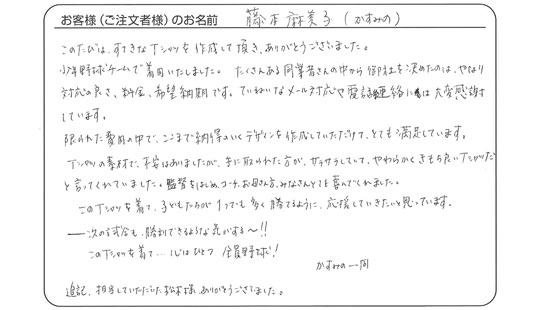 お客様(ご注文者様)のお名前 藤本麻美子(かすみの)
このたびは、すてきなTシャツを作成して頂き、ありがとうございました。
少年野球チームで着用いたしました。たくさんある同業者さんの中から御社を決めたのは、やはり
対応の良さ、料金、希望納期です。ていねいなメール対応や電話連絡には大変感謝
しています。
限られた費用の中で、ここまで納得のいくデザインを作成していただけて、とても満足しています。
Tシャツの素材で、不安はありましたが、手に取られた方が、サラサラしていて、やわらかくきもち良いTシャツだ
と言ってくれていました。監督をはじめ、コーチ、お母さん方、みなさんとても喜んでくれました。
このTシャツを着て、子どもたちが1つでも多く勝てるように、応援していきたいと思っています。
――次の試合も、勝利できるような気がする〜!!
このTシャツを着て…心はひとつ 全員野球!
かすみの一同
追記、担当していただいた松本様、ありがとうございました。